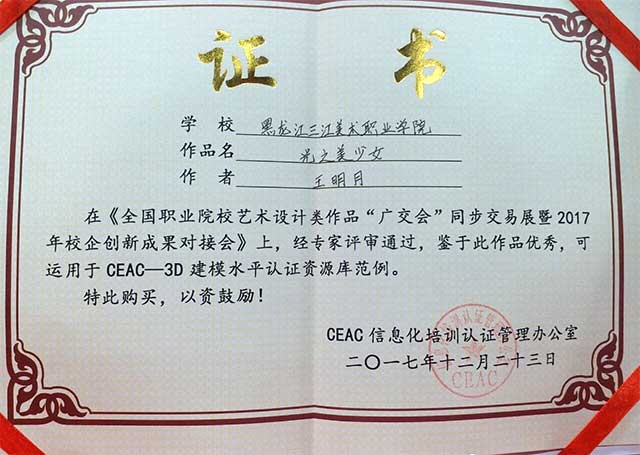 证 书
学 校 黑龙江三江美术职业学院
作品名 光之美少女
作 者 王明月
在《全国职业院校艺术设计类作品“广交会”同步交易展暨 2017
年校企创新成果对接会》上，经专家评审通过，鉴于此作品优秀，可
运用于 CEAC—3D 建模水平认证资源库范例。
特此购买，以资鼓励！
CEAC 信息化培训认证管理办公室
二〇一七年十二月二十三日
CEAC